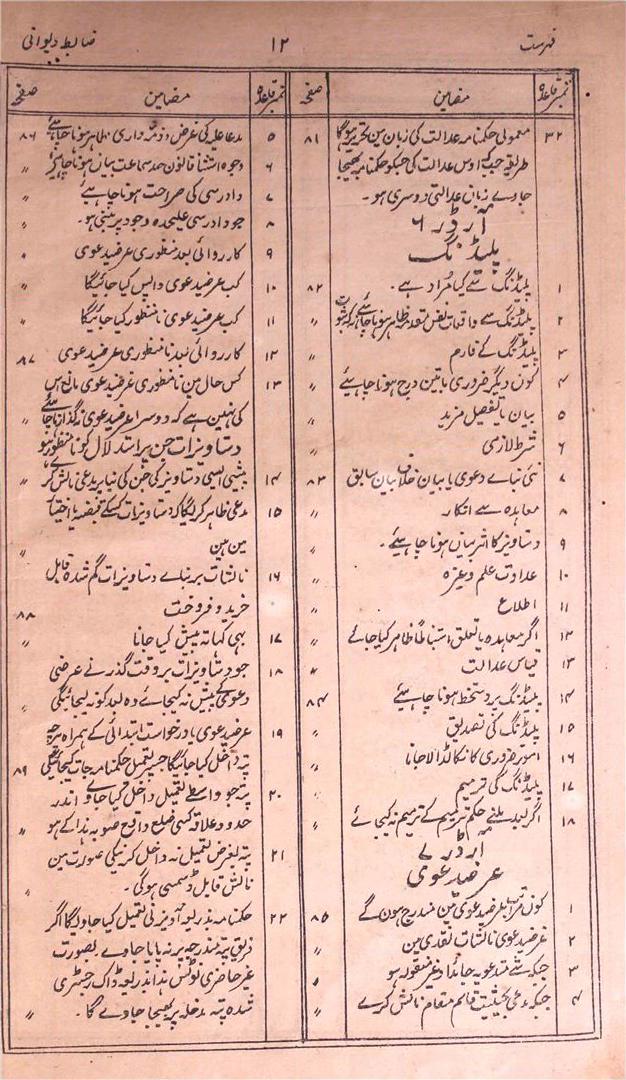 فہرست ۱۲ ضابطہ دیوانی
نمبر قاعدہ مضامین صفحہ
۳۲ معمولی حکمنامہ عدالت کی زبان مین تحریر ہوگا ۸۱
طریقہ جبکہ اوس عدالت کی جسکو حکمنامہ بھیجا
جاوے زبان عدالتی دوسری ہو۔
آرڈر ۶
پلیڈنگ
۱ پلیڈنگ سے کیا مُراد ہے۔ ۸۲
۲ پلیڈنگ سے واقعات نفس مقدمہ ظاہر ہونا چاہئے نہ کہ ثبوت ״
۳ پلیڈنگ کے فارم ״
۴ کون دیگر ضروری باتین درج ہونا چاہیئے ״
۵ بیان یا تفصیل مزید ״
۶ شرط لازمی ״
۷ نئی بناے دعوی یا بیان خلاف بیان سابق ۸۳
۸ معاہدہ سے انکار ״
۹ دستاویز کا اثر بیان ہونا چاہیئے۔ ״
۱۰ عداوت علم وغیرہ ״
۱۱ اطلاع ״
۱۲ اگر معاہدہ یا تعلق استنباطاً ظاہر کیا جائے ״
۱۳ قیاس عدالت ״
۱۴ پلیڈنگ پر دستخط ہونا چاہیئے ۸۴
۱۵ پلیڈنگ کی تصدیق ״
۱۶ امور ضروری کا نکالڈالا جانا ״
۱۷ پلیڈنگ کی ترمیم ״
۱۸ اگر بعد ملنے حکم ترمیم کے ترمیم نہ کیجائے ״
آرڈر ۷
عرضیدعوی
۱ کون مراتب عرضیدعوی مین مندرج ہون گے ۸۵
۲ عرضیدعوی نالشات نقدی مین ״
۳ جبکہ شے متدعویہ جائداد غیر منقولہ ہو ״
۴ جبکہ مدعی بحیثیت قائم مقام نالش کرے ״
نمبر قاعدہ مضامین صفحہ
۵ مدعاعلیہ کی غرض و ذمہ داری ظاہر ہونا چاہئے ۸۶
۶ وجوہ استثنا قانون حد سماعت بیان ہونا چاہیئے ״
۷ دادرسی کی صراحت ہونا چاہئے ״
۸ جو دادرسی علیحدہ وجوہ پر مبنی ہو۔ ״
۹ کارروائی بعد منظوری عرضیدعوی ״
۱۰ کب عرضیدعوی واپس کیا جائیگا ״
۱۱ کب عرضیدعوی نامنظور کیا جائیگا ״
۱۲ کارروائی بعد نامنظوری عرضیدعوی ۸۷
۱۳ کس حال مین نامنظوری عرضیدعوی مانع اس
کی نہین ہے کہ دوسرا عرضیدعوی نہ گذرانا جائے ״
دستاویزات جن پر استدلال کو نامنظور ہو
۱۴ پیشی ایسی دستاویز کی جن کی بنا پر مدعی نالش کرے ״
۱۵ مدعی ظاہر کریگا کہ دستاویزات کسکے قبضہ یا اختیار
مین ہین ״
۱۶ نالشات بربناے دستاویزات گم شدہ قابل
خرید و فروخت ۸۸
۱۷ بہی کھاتہ پیش کیا جانا ״
۱۸ جو دستاویزات بروقت گذرنے عرضی
دعوی کے پیش نہ کیجائے وہ بعد کو نہ لیجائیگی ״
۱۹ عرضیدعوی یا درخواست ابتدائی کے ہمراہ پرچہ
پتہ داخل کیا جائیگا جسپر تعمیل حکمنامہ جات کیجائیگی ۸۹
۲۰ پتہ جو واسطے تعمیل داخل کیا جاوے اندر
حدود علاقہ کسی ضلع واقع صوبہ ہذا کے ہو ״
۲۱ پتہ بغرض تعمیل نہ داخل کرنیکی صورت مین
نالش قابل ڈسمسی ہوگی۔ ״
۲۲ حکمنامہ بذریعہ آویزنی تعمیل کیا جاویگا اگر
فریق پتہ مندرجہ پر نہ پایا جاوے بصورت
غیر حاضری نوٹس ہذا بذریعہ ڈاک رجسٹری
شدہ پتہ مدخلہ پر بھیجا جاوے گا۔ ״